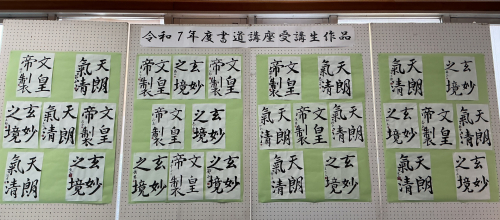 令和7年度書道講座受講生作品
文皇帝製
天朗氣清
天朗氣清
玄妙之境
文皇帝製
天朗氣清
玄妙之境
文皇帝製
玄妙之境
文皇帝製
文皇帝製
玄妙之境
玄妙之境
文皇帝製
玄妙之境
文皇帝製
天朗氣清
天朗氣清
文皇帝製
天朗氣清
天朗氣清
玄妙之境
天朗氣清
玄妙之境
玄妙之境
天朗氣清
文皇帝製
天朗氣清
玄妙之境